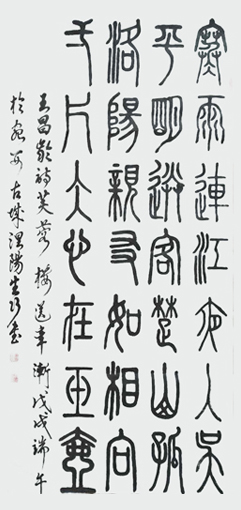 寒雨連江夜入吳
平明送客楚山孤
洛陽親友如相問
一片冰心在玉壺
王昌齡詩芙蓉樓送辛漸戊戌端午
於 古城涅陽 書